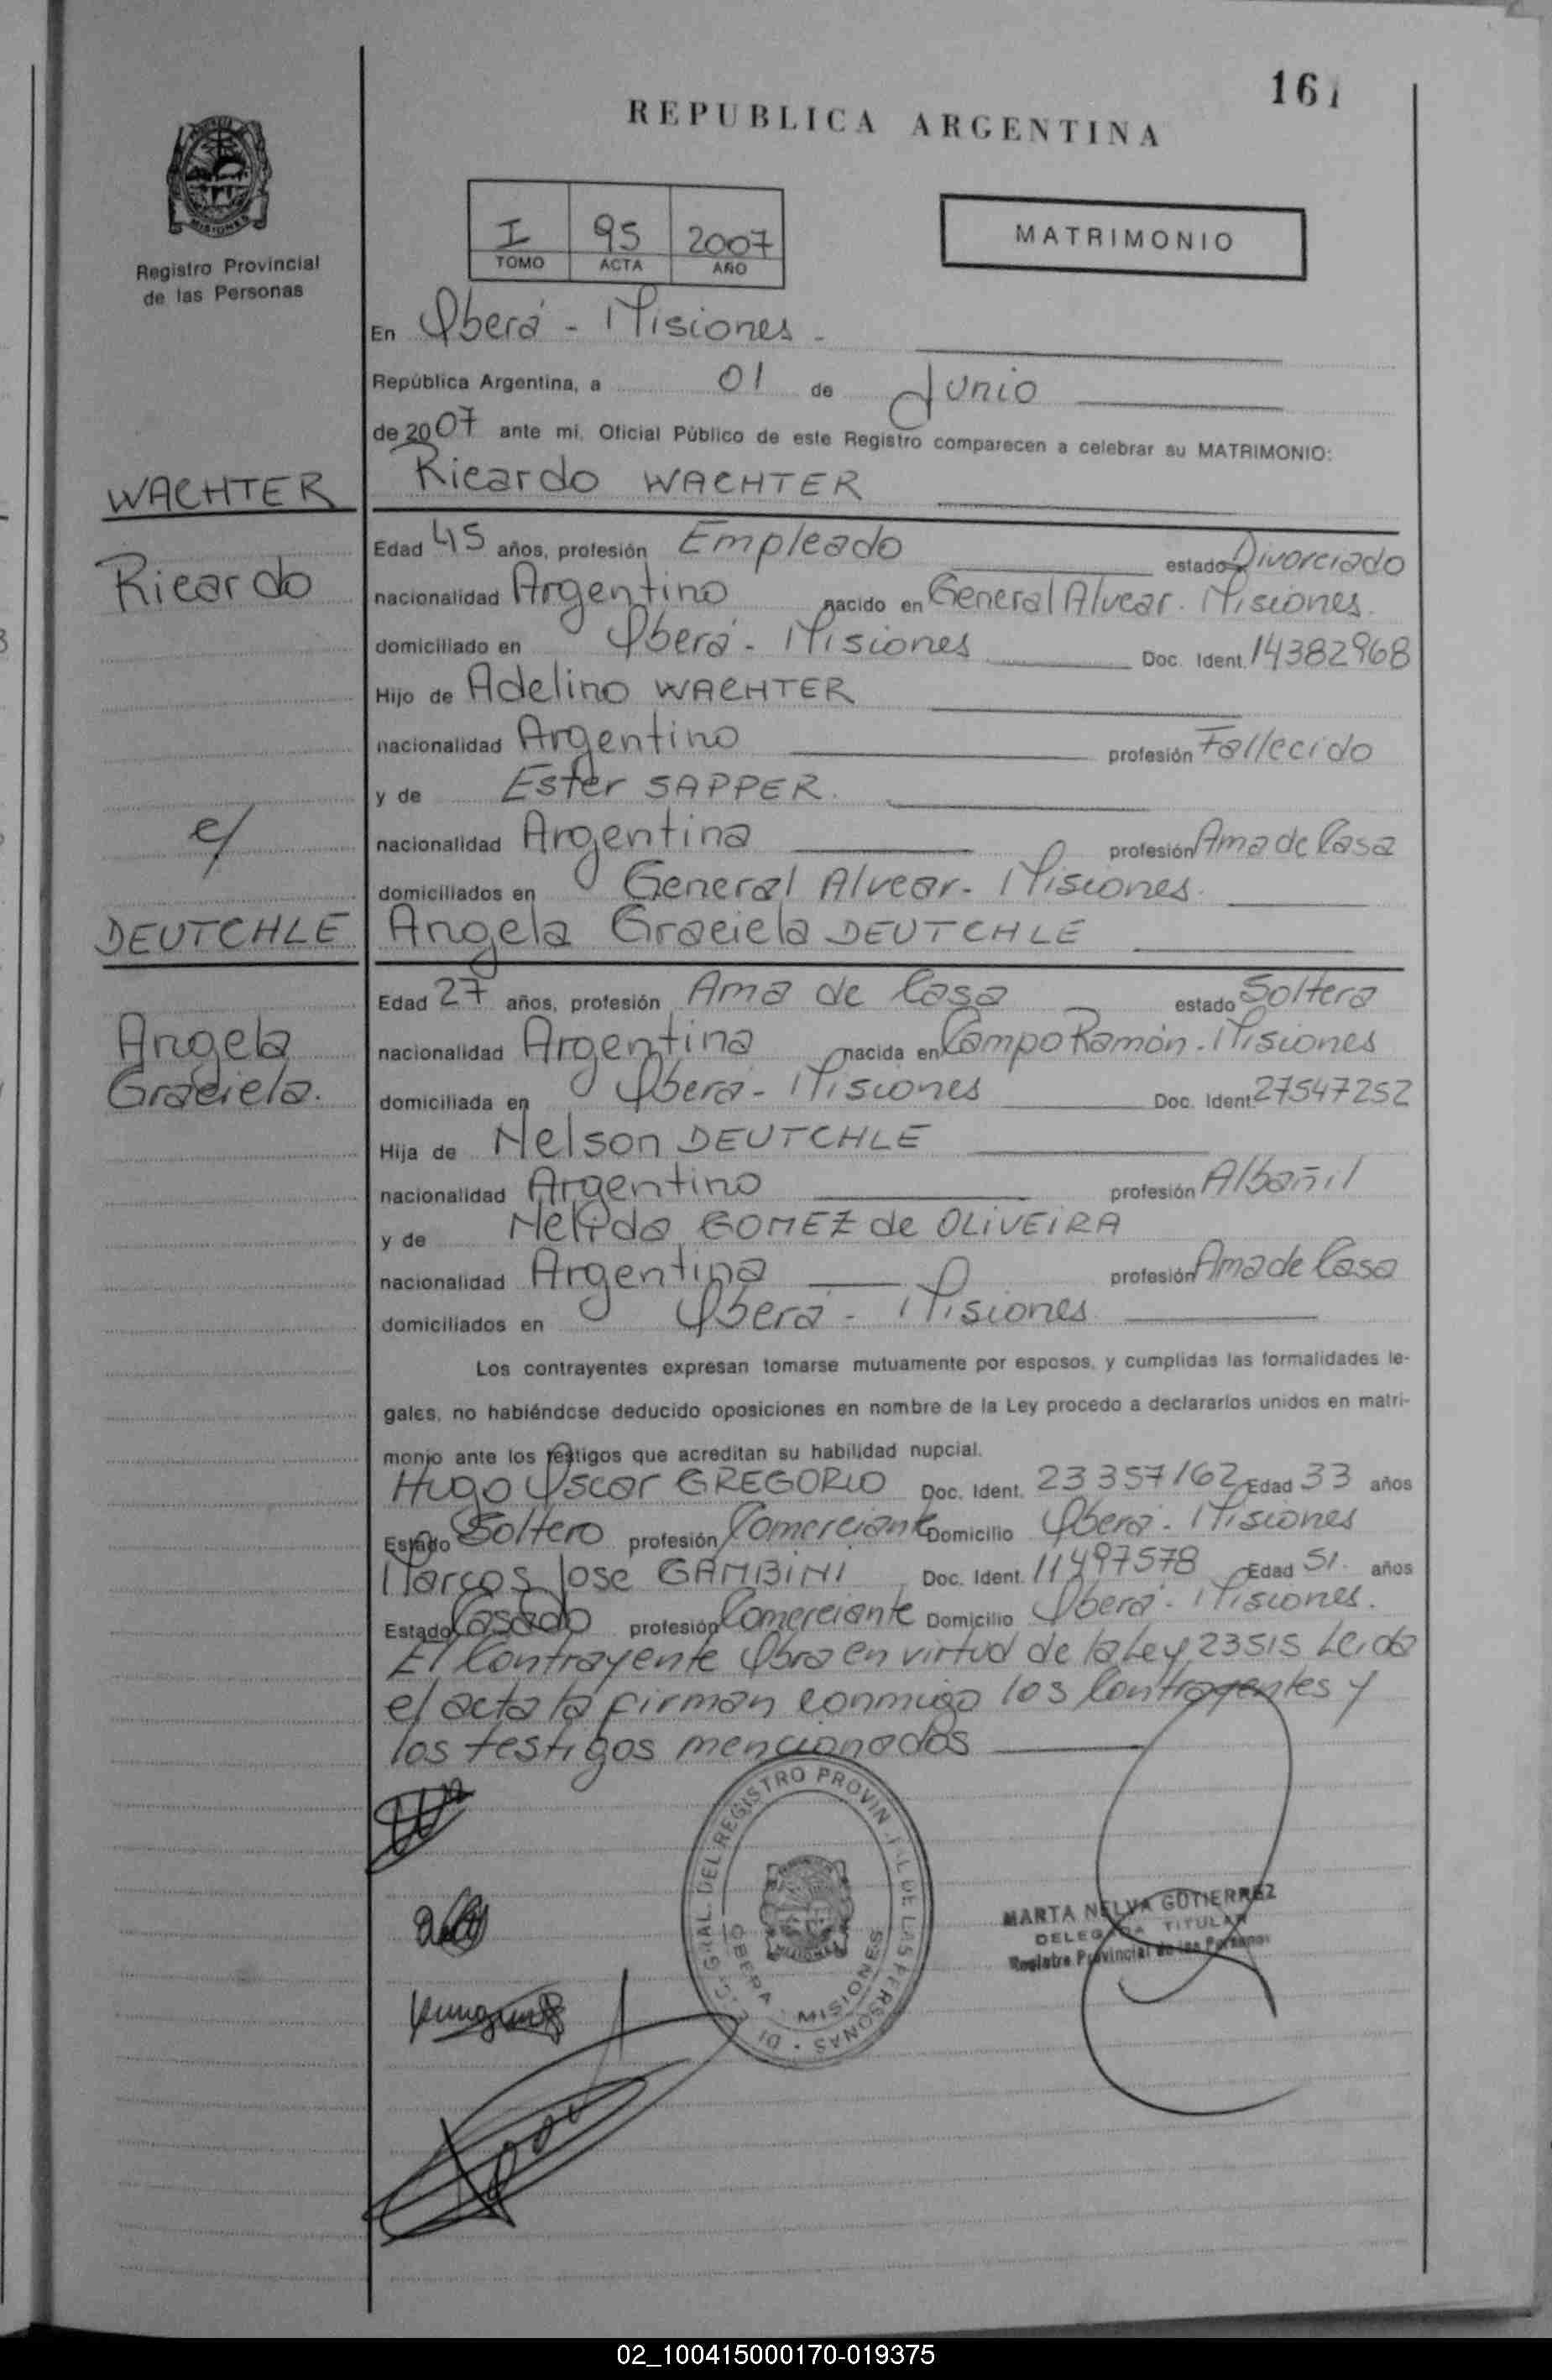 161
REPUBLICA ARGENTINA
I 95 2007
TOMO ACTA AÑO
MATRIMONIO
MISIONES
Registro Provincial
de las Personas
En Oberá - Misiones -
República Argentina, a 01 de Junio
de 2007 ante mi, Oficial Público de este Registro comparecen a celebrar su MATRIMONIO:
WACHTER Ricardo WACHTER
Edad 45 años, profesión Empleado estado Divorciado
Ricardo nacionalidad Argentino nacido en General Alvear. Misiones.
domiciliado en Oberá - Misiones Doc. Ident. 14382968
Hijo de Adelino WACHTER
nacionalidad Argentino profesión Fallecido
y de Ester SAPPER.
c/ nacionalidad Argentina profesión Ama de Casa
domiciliados en General Alvear - Misiones.
DEUTCHLE Angela Graciela DEUTCHLE
Edad 27 años, profesión Ama de Casa estado Soltera
Angela nacionalidad Argentina nacida en Campo Ramón - Misiones
Graciela. domiciliada en Oberá - Misiones Doc. Ident. 27547252
Hija de Nelson DEUTCHLE
nacionalidad Argentino profesión Albañil
y de Nelida GOMEZ de OLiVEiRA
nacionalidad Argentina profesión Ama de Casa
domiciliados en Oberá - Misiones
Los contrayentes expresan tomarse mutuamente por esposos, y cumplidas las formalidades le-
gales, no habiéndose deducido oposiciones en nombre de la Ley procedo a declararlos unidos en matri-
monio ante los testigos que acreditan su habilidad nupcial.
Hugo Oscar GREGORIO Doc. Ident. 23357162 Edad 33 años
Estado Soltero profesión Comerciante Domicilio Oberá - Misiones
Marcos Jose GAMBiNi Doc. Ident. 11497578 Edad 51. años
Estado Casado profesión Comerciante Domicilio Oberá - Misiones.
El Contrayente Obra en virtud de la Ley 23515 Leida
el acta la firman conmigo los Contrayentes y
los testigos mencionados
GRAL. DEL REGISTRO PROVIN DE LAS PERSONAS
OBERA - MISIONES
MARTA NELVA GUTIERREZ
DELEGADA TITULAR
Registro Provincial de las Personas
02_100415000170-019375